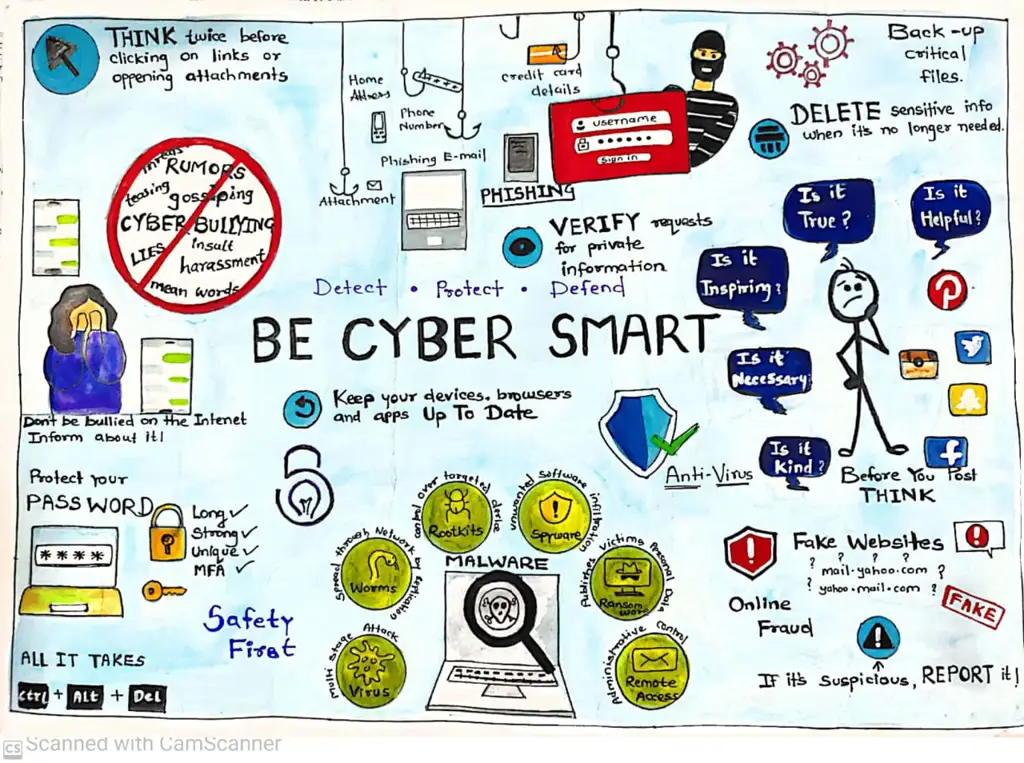 THINK twice before
clicking on links or
oppening attachments
Home
Address
Phone
Number
Phishing E-mail
Attachment
credit card
details
username
sign in
PHISHING
Back-up
critical
files.
DELETE sensitive info
when it's no longer needed.
threats
RUMORS
teasing
gossiping
CYBER BULLYING
LIES
insult
harassment
mean words
VERIFY requests
for private
information
Detect • Protect • Defend
BE CYBER SMART
Is it
True?
Is it
Helpful?
Is it
Inspiring?
Is it
Necessary
Is it
Kind?
Before You Post
THINK
Don't be bullied on the Internet
Inform about it!
Keep your devices, browsers
and apps Up To Date
Anti-Virus
Protect your
PASSWORD
Long ✓
Strong ✓
Unique ✓
MFA ✓
****
Safety
First
ALL IT TAKES
Ctrl + Alt + Del
MALWARE
Multi Stage Attack
Virus
Spread through Network by replication
Worms
control over targeted device
Rootkits
unwanted Software infiltration
Spyware
Publishes victims Personal Data
Ransom
ware
Administrative Control
Remote
Access
Fake Websites
? ? ?
mail-yahoo.com ?
? yahoo.mail.com
FAKE
Online
Fraud
If it's suspicious, REPORT it!
CS Scanned with CamScanner